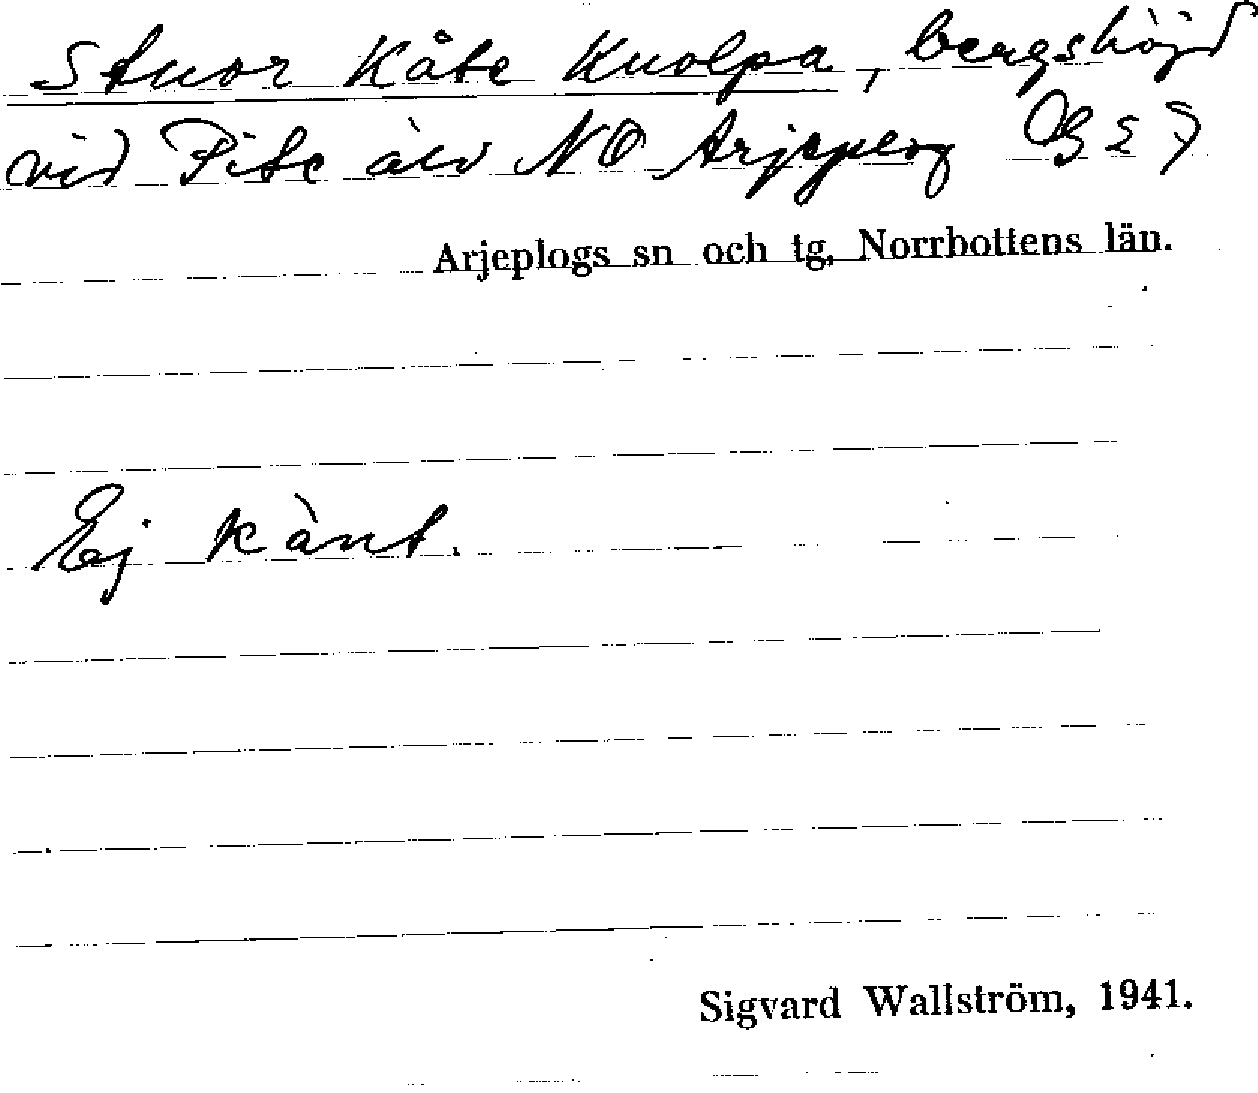 Stuor Kåte Kuolpa, bergshöjd
vid Pite älv NO Arjeplog G 27
Arjeplogs sn och tg, Norrbottens län.
Ej känt.
Sigvard Wallström, 1941.